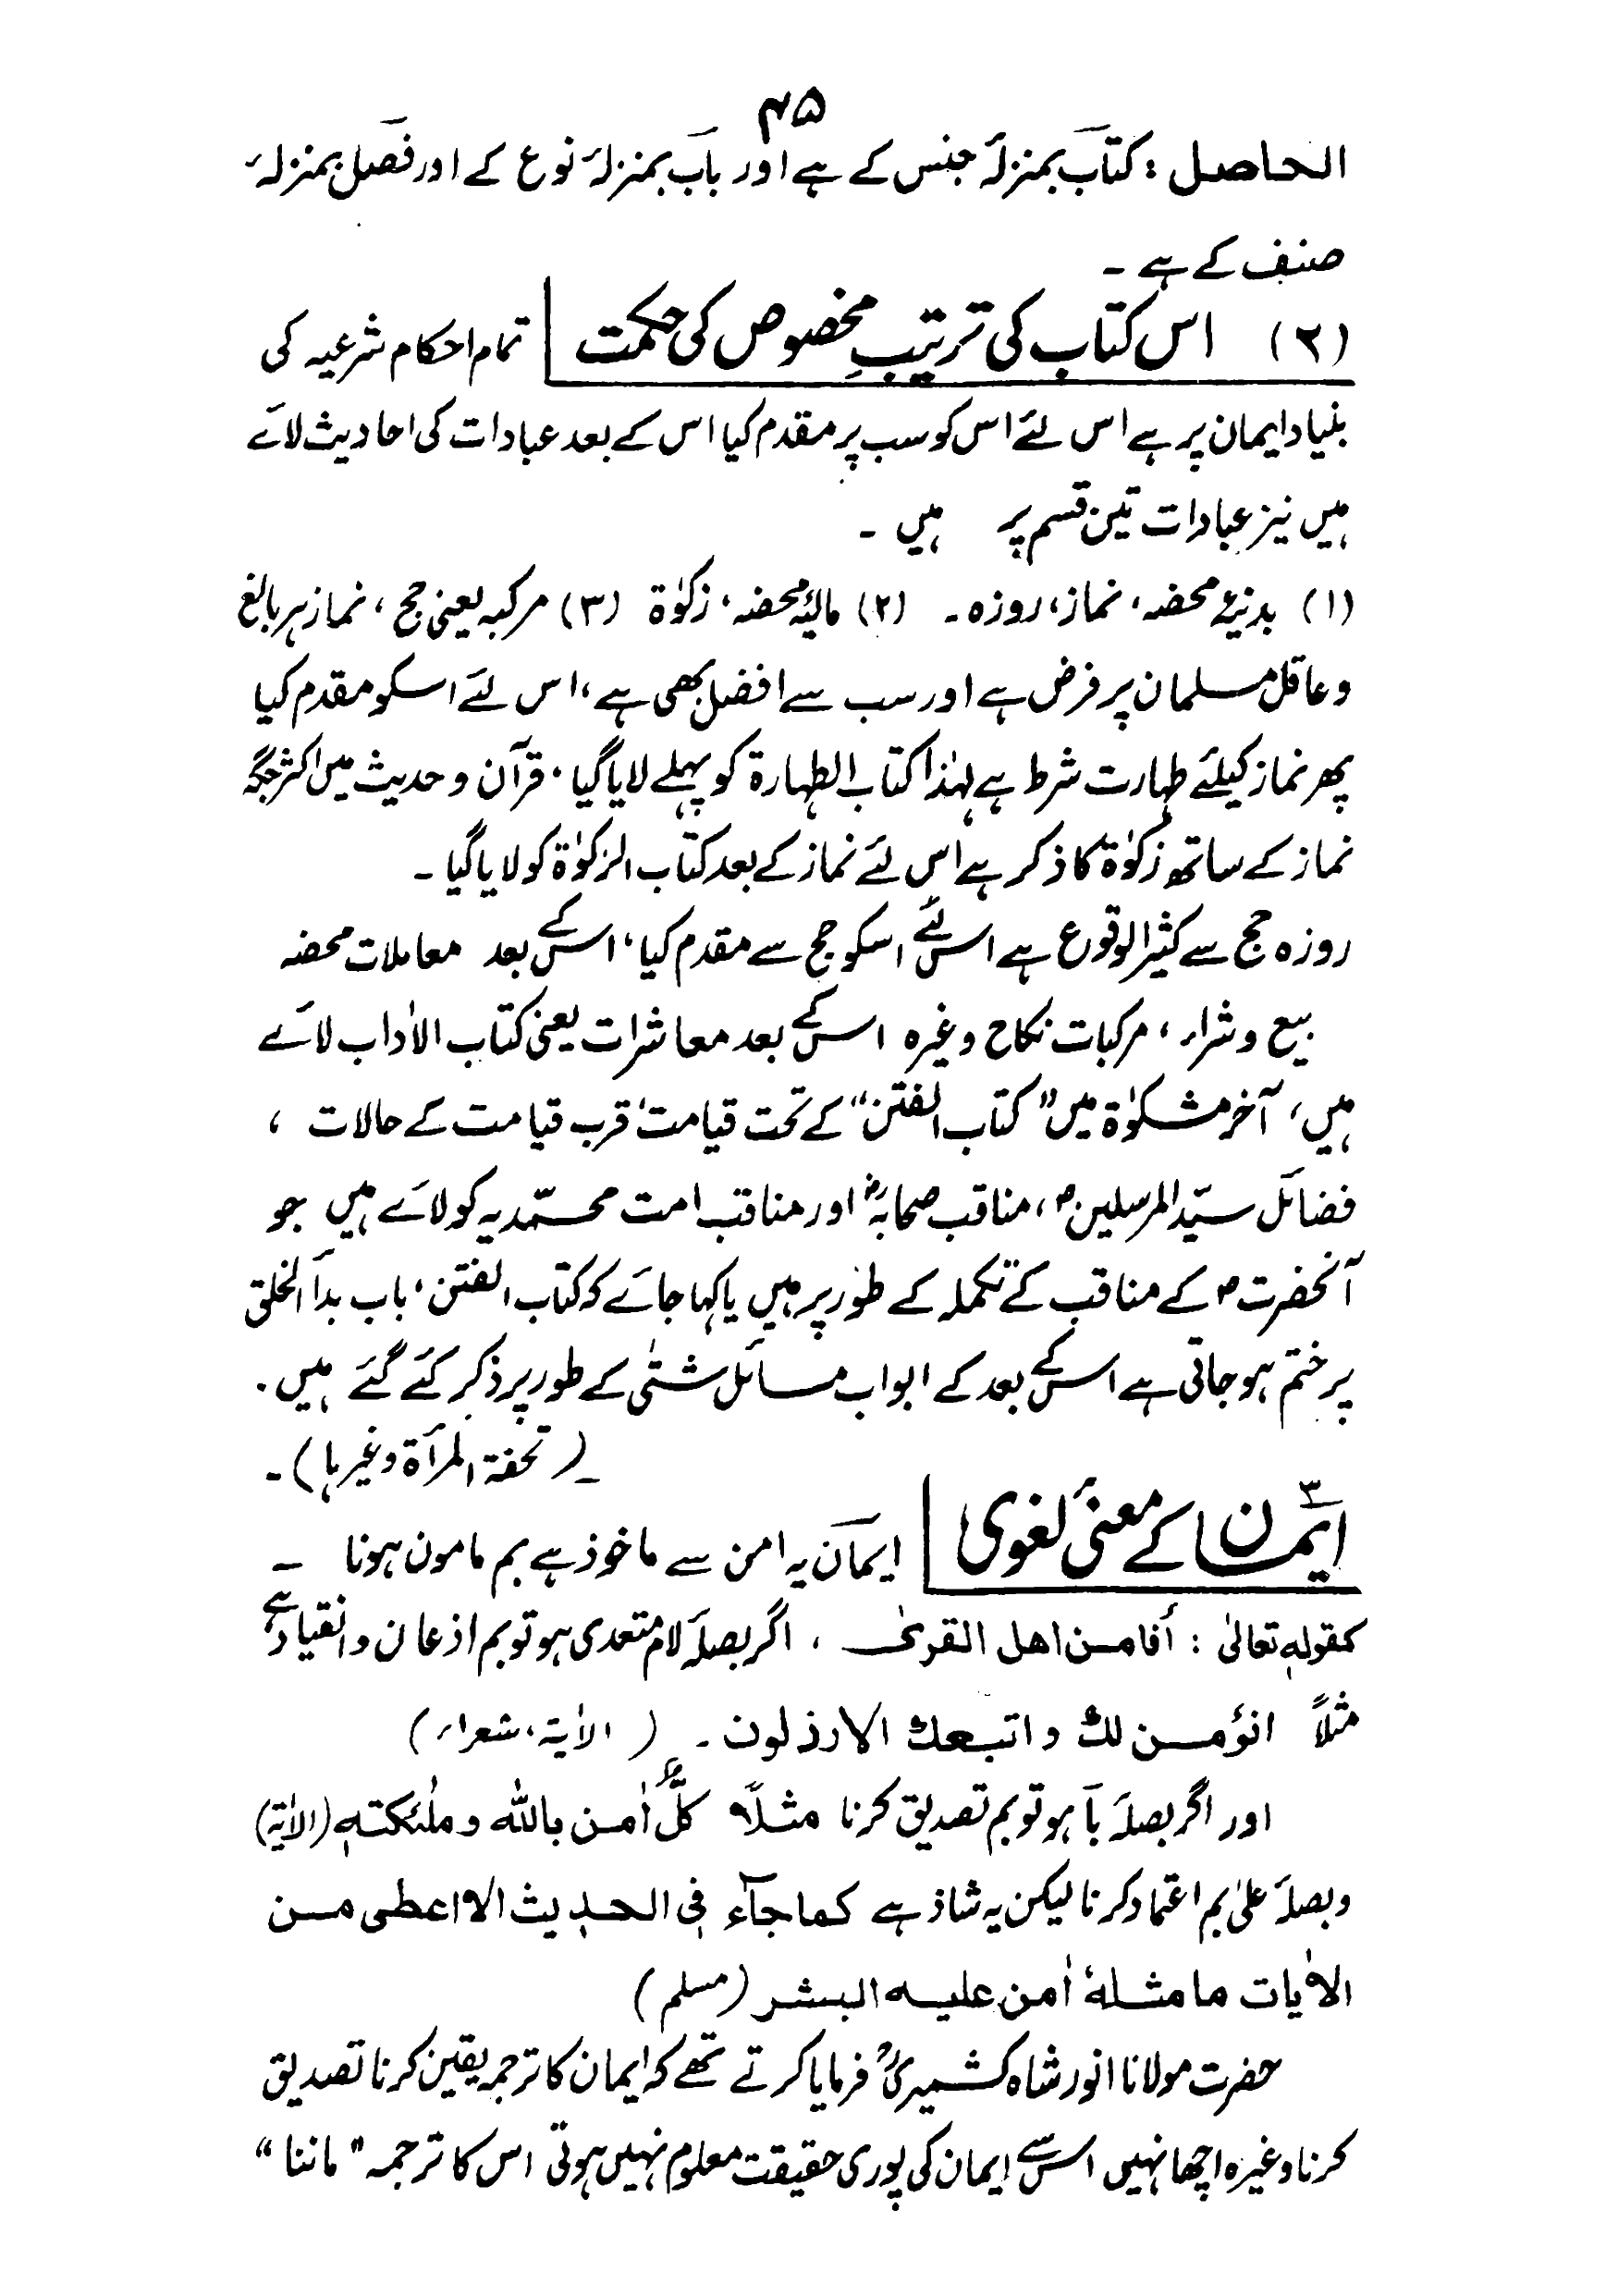 ۴۵
الحاصل : کتاب بمنزلۂ جنس کے ہے اور باب بمنزلۂ نوع کے اور فصل بمنزلۂ
صنف کے ہے ۔
(۲) اس کتاب کی ترتیبِ مخصوص کی حکمت تمام احکام شرعیہ کی
بنیاد ایمان پر ہے اس لئے اس کو سب پر مقدم کیا اس کے بعد عبادات کی احادیث لائے
ہیں نیز عبادات تین قسم پر ہیں ۔
(۱) بدنیۂ محضہ، نماز، روزہ ۔ (۲) مالیۂ محضہ، زکوٰۃ (۳) مرکبہ یعنی حج ، نماز ہر بالغ
و عاقل مسلمان پر فرض ہے اور سب سے افضل بھی ہے، اس لئے اسکو مقدم کیا
پھر نماز کیلئے طہارت شرط ہے لہٰذا کتاب الطہارۃ کو پہلے لایا گیا ۔ قرآن و حدیث میں اکثر جگہ
نماز کے ساتھ زکوٰۃ کا ذکر ہے اس لئے نماز کے بعد کتاب الزکوٰۃ کو لایا گیا ۔
روزہ حج سے کثیر الوقوع ہے اس لئے اسکو حج سے مقدم کیا، اس کے بعد معاملات محضہ
بیع و شراء ، مرکبات نکاح وغیرہ اس کے بعد معاشرات یعنی کتاب الاٰداب لائے
ہیں، آخر مشکوٰۃ میں "کتاب الفتن" کے تحت قیامت، قرب قیامت کے حالات ،
فضائل سیّد المرسلینؐ ، مناقب صحابہؓ اور مناقب امت محمّدیہ کو لائے ہیں جو
آنحضرتؐ کے مناقب کے تکملہ کے طور پر ہیں یا کہا جائے کہ کتاب الفتن، باب بدأ الخلق
پر ختم ہو جاتی ہے اس کے بعد کے ابواب مسائل شتّٰی کے طور پر ذکر کئے گئے ہیں ۔
(تحفۃ المرأۃ وغیرہا) ۔
۳ ایمان کے معنیٔ لغوی ایمان یہ امن سے ماخوذ ہے بم مامون ہونا ۔
کقولہٖ تعالیٰ : أفامن اهل القرىٰ ، اگر بصلۂ لام متعدی ہو تو بم اذعان و انقیاد ہے
مثلاً انؤمن لك واتبعك الارذلون ۔ (الاٰیۃ، شعراء)
اور اگر بصلۂ بآ ہو تو بم تصدیق کرنا مثلاً کلٌّ اٰمن باللہ وملٰئکتہٖ (الاٰیۃ)
وبصلۂ علیٰ بم اعتماد کرنا لیکن یہ شاذ ہے کما جآء فی الحدیث الا اعطی من
الاٰیات ما مثلہٗ اٰمن علیہ البشر (مسلم)
حضرت مولانا انور شاہ کشمیریؒ فرمایا کرتے تھے کہ ایمان کا ترجمہ یقین کرنا تصدیق
کرنا وغیرہ اچھا نہیں اس سے ایمان کی پوری حقیقت معلوم نہیں ہوتی اس کا ترجمہ "ماننا"